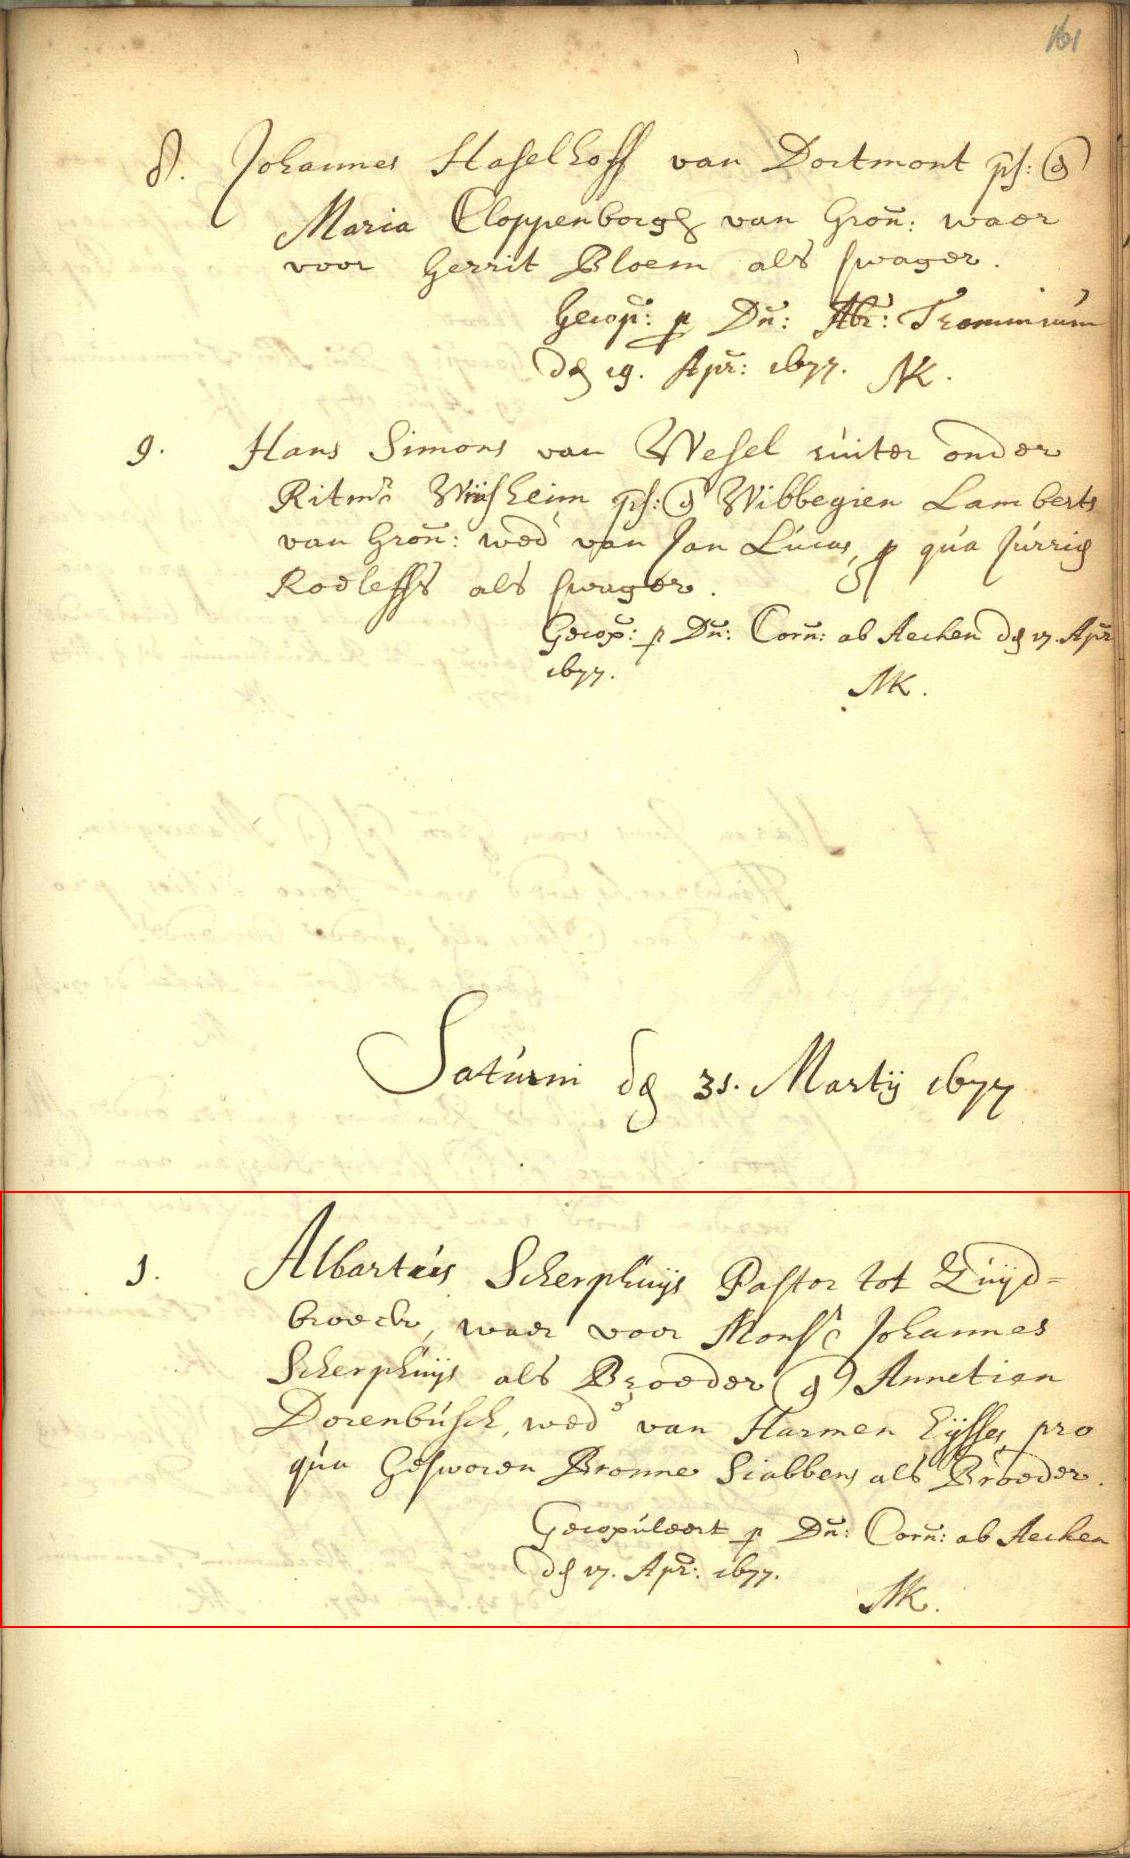 161
8. Johannes Haselhoff van Dortmont ps: &
Maria Cloppenborgh van Gron̄: waer
voor Gerrit Bloem als swager.
Gecop̄: p Dn̄: Abr̄: Trommium
dẽ 19. Apr̄: 1677. NK.
9. Hans Simons van Wesel ruiter onder
Ritmr ps: & Wibbegien Lamberts
van Gron̄: wed van Jan Lucas, p qua Jurrig
Roeleffs als swager.
Gecop̄: p Dn̄: Corn̄: ab Aechen dẽ 17. Apr̄
1677.
NK.
Saturni dẽ 31. Martij 1677
1. Albartus Scherphuijs Pastor tot Zuijd=
broeck, waer voor Monsr Johannes
Scherphuijs als Broeder & Annetien
Dorenbusch, wede van Harmen Eijsses, pro
qua Gesworen Bronne Siabbens als Broeder.
Gecopuleert p Dn̄: Corn̄: ab Aechen
dẽ 17. Apr̄: 1677.
NK.